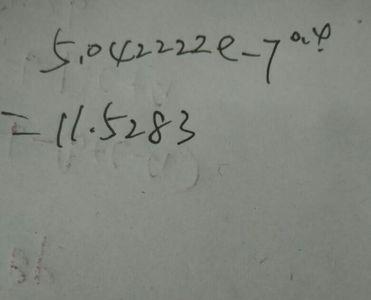 5.042222e-7^0.4
=11.5283